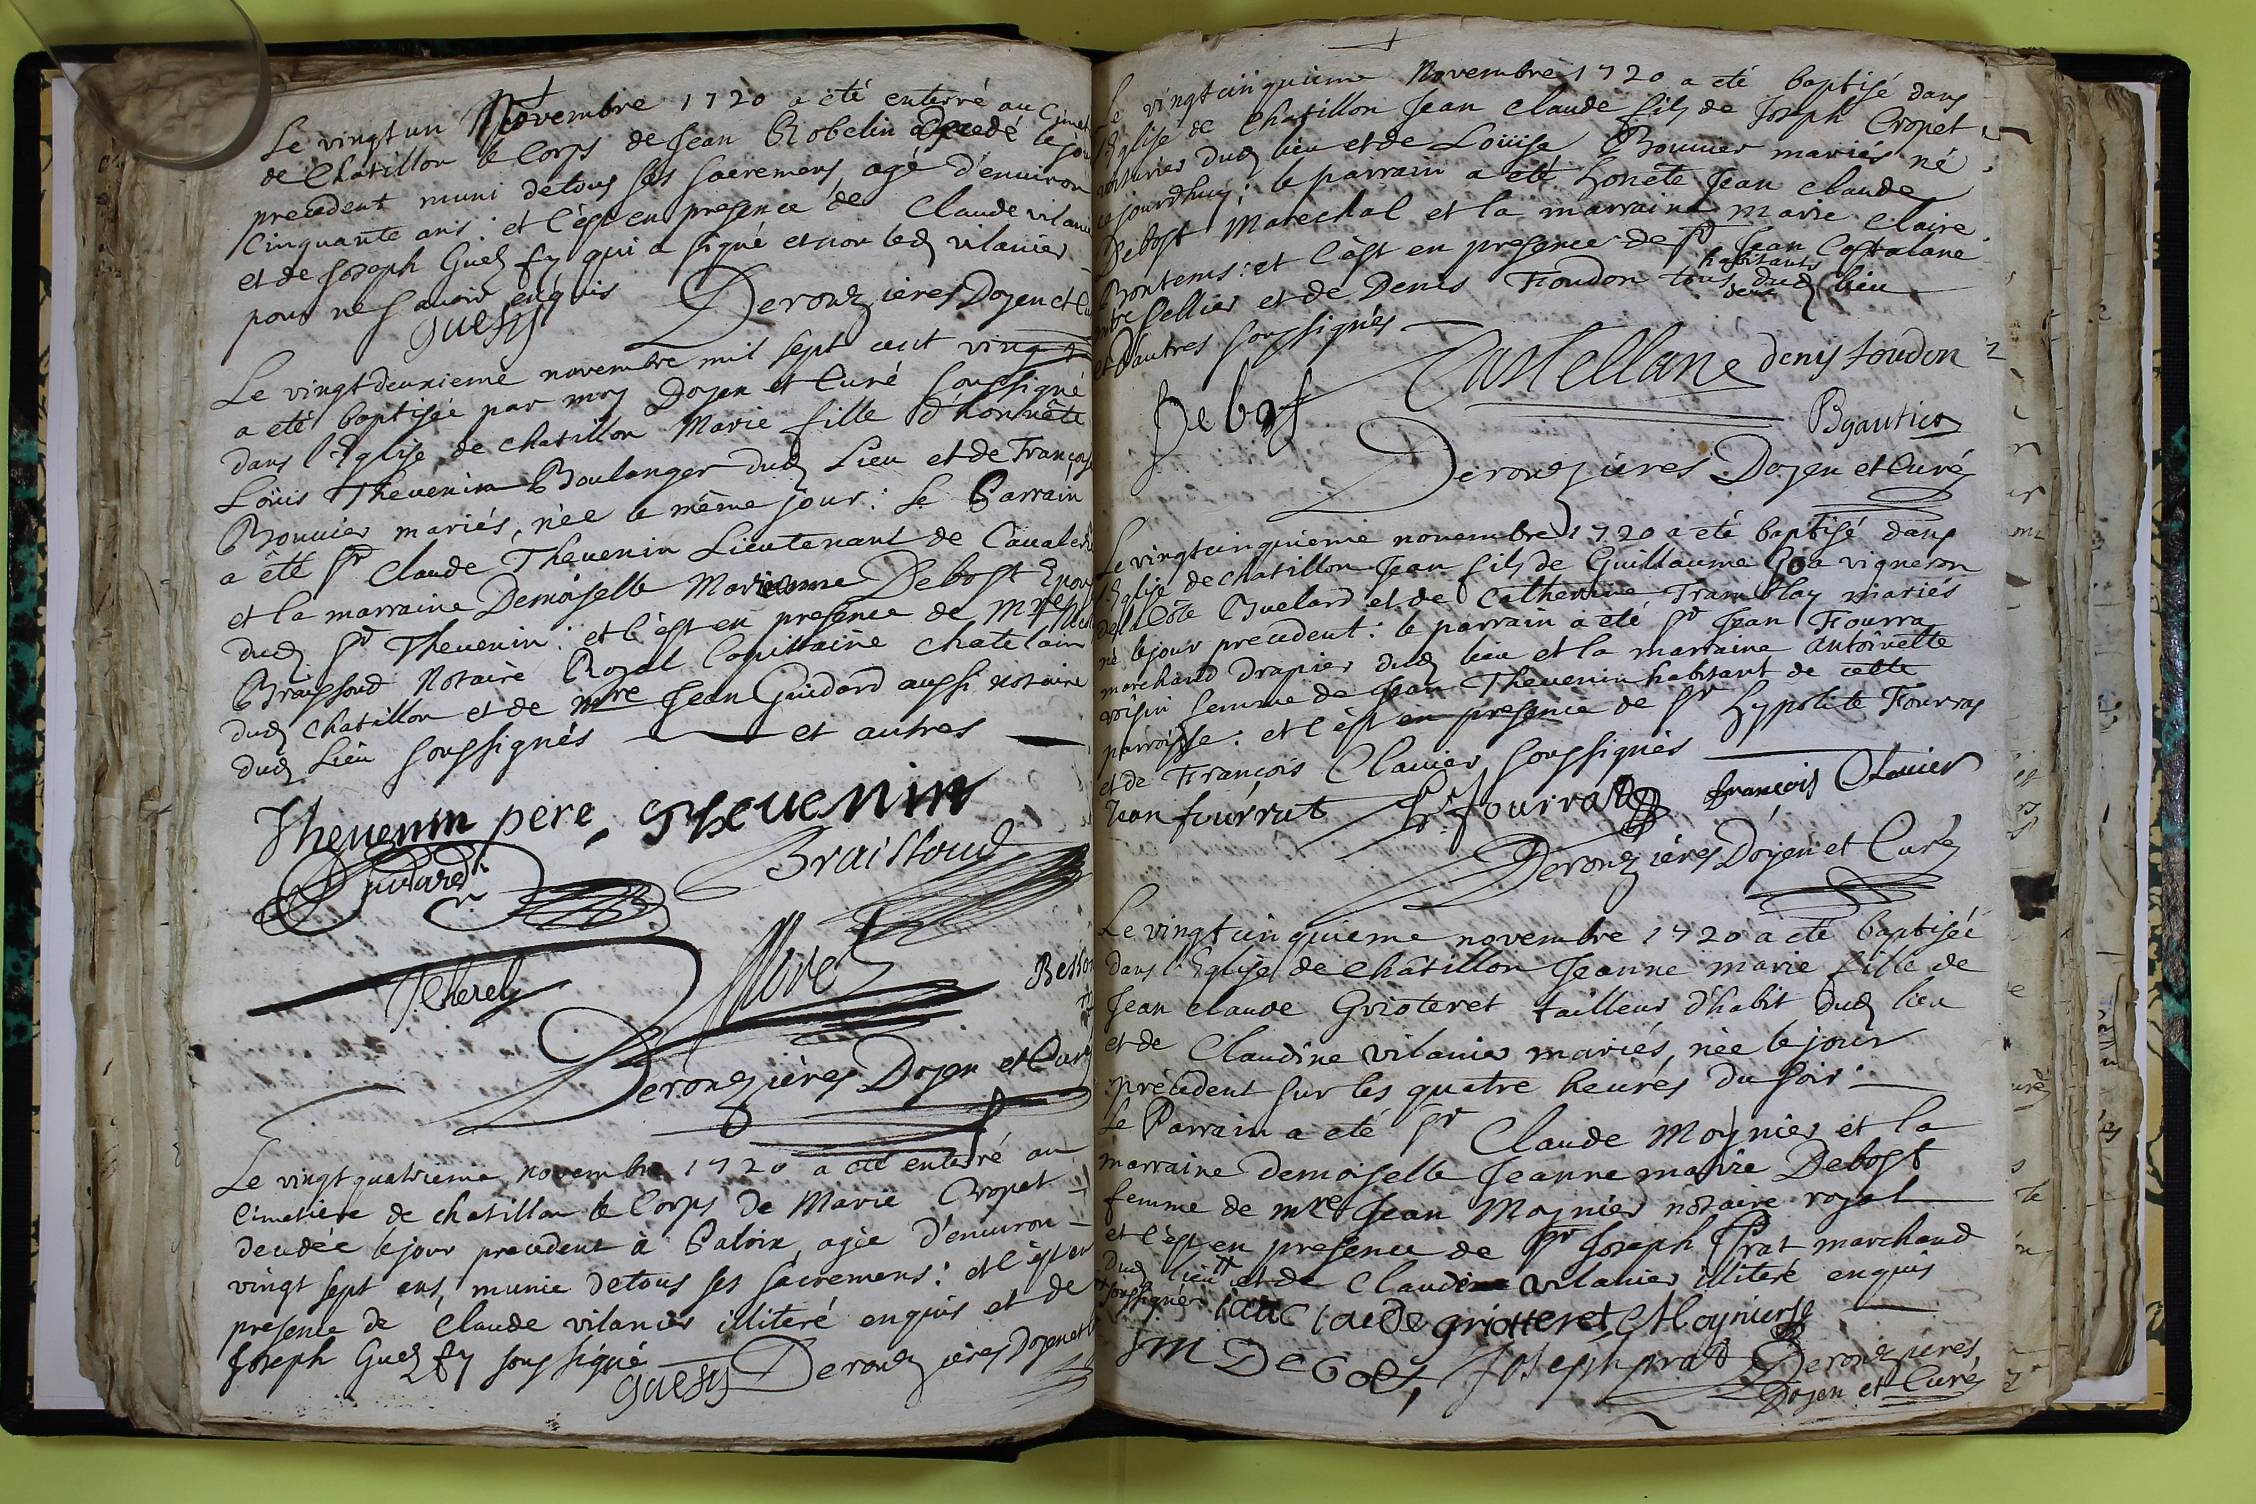 Le vingt un Novembre 1720 a été enterré au Cimet
de Chatillon le Corps de Jean Robelin Decedé le jour
precedent muni de tous ses sacremens, agé d'environ
Cinquante ans: et c'est en presence de Claude vilanier
et de Joseph Guesfy qui a signé et non led vilanier
pour ne sçavoir enquis
Guesfy Derouzieres Doyen et Cu
Le vingt deuxieme novembre mil sept cent vingt
a eté baptisée par moy Doyen et Curé soussigné
dans l'Eglise de chatillon Marie fille d'honnête
Loüis Thevenin Boulanger dud Lieu et de Françoise
Bouvier mariés, née le même jour: Le Parrain
a été Sr Claude Thevenin Lieutenant de Cavalerie
et la marraine Demoiselle Marianne Debost Epou
dud Sr Thevenin: et c'est en presence de Mre
Braissoud Notaire Royal Capittaine Chatelain
dud Chatillon et de mre Jean Guidard aussi notaire
dud Lieu soussignés et autres
Thevenin pere, Thevenin
Guidard Braissoud
Besson
Derouzières Doyen et Curé
Le vingt quatrieme novembre 1720 a eté enterré au
Cimetière de chatillon le Corps de Marie Cropet
decedée le jour precedent à Paloin agée d'environ
vingt sept ans, munie de tous ses sacremens: et c'est en
presence de Claude vilanier illiteré enquis et de
Joseph Guesfy soussigné
Guesfy Derouzières Doyen et C
Le vingt cinquieme Novembre 1720 a eté baptisé dans
l'Eglise de Chatillon Jean Claude fils de Joseph Cropet
voiturier dud lieu et de Loüise Bouvier mariés né
ce jourdhuy: le parrain a eté honête Jean Claude
Debost Marechal et la marraine marie Claire
Bontems: et c'est en presence de Sr Jean Castalane
habitants
mtre sellier et de Denis Foudon tous deux dud lieu
et d'autres soussignés
Debost Castellane denis foudon
Bgautier
Derouzieres Doyen et Curé
Le vingt cinquieme novembre 1720 a eté baptisé dans
l'Eglise de chatillon Jean fils de Guillaume Goa vigneron
de la Côte Buelard et de Catherine Tramblay mariés
né le jour precedent: le parrain a eté Sr Jean Fourra
marchand Drapier dud lieu et la marraine antoinette
voisin femme de Jean Thevenin habitant de cette
parroisse: et c'est en presence de Sr hyppolite Fourray
et de François Clavier soussignés
Jean fourrat hr. fourrat françois Clavier
Derouzières Doyen et Curé
Le vingt cinquieme novembre 1720 a eté baptisée
dans l'Eglise de Châtillon Jeanne marie fille de
Jean Claude Grioteret tailleur d'habit dud lieu
et de Claudine vilanier mariés, née le jour
precedent sur les quatre heures du soir.
Le Parrain a eté Sr Claude Moynier et la
marraine demoiselle Jeanne marie Debost
femme de mre Jean Moynier notaire royal
et c'est en presence de Sr Joseph Prat marchand
dud lieu et de Claude vilanier illiteré enquis
soussignés Jean Claude griotteret CMoynier
JM Debost, Joseph prat Derouzieres
Doyen et Curé